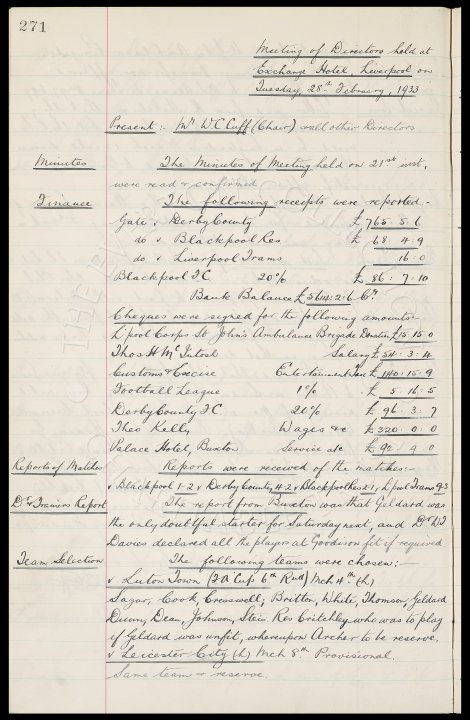 271
Meeting of Directors held at
Exchange Hotel, Liverpool on
Tuesday, 28th February, 1933
Present :- Mr W C Cuff (Chair) & all other Directors
Minutes The Minutes of Meeting held on 21st inst.
were read & confirmed
Finance The following receipts were reported:-
Gate v Derby County £ 765. 5. 6
do v Blackpool Res £ 68. 4. 9
do v Liverpool Trams 16. 0
Blackpool FC 20% £ 86. 7. 10
Bank Balance £5614. 2. 6 Cr.
Cheques were signed for the following amounts:-
L'pool Corps St John's Ambulance Brigade Donation £15. 15. 0
Thos H McIntosh Salary £ 34. 3. 4
Customs & Excise Entertainment Tax £ 140. 15. 9
Football League 1% £ 5. 16. 5
Derby County FC 20% £ 96. 3. 7
Theo Kelly Wages &c £ 320. 0. 0
Palace Hotel, Buxton Service a/c £ 92. 9. 0
Reports of Matches Reports were received of the matches:-
v Blackpool 1-2 v Derby County 4-2 v Blackpool Res 2-1, L'pool Trams 9-3
Dr & Trainers Report The report from Buxton was that Geldard was
the only doubtful starter for Saturday next, and Dr
Davies declared all the players at Goodison fit if required
Team Selection The following teams were chosen:-
v Luton Town (FA Cup 6th Rnd) Mch 4th (h)
Sagar, Cook, Cresswell, Britton, White, Thomson, Geldard
Dunn, Dean, Johnson, Stein Res Critchley who was to play
if Geldard was unfit, whereupon Archer to be reserve.
v Leicester City (h) Mch 8th Provisional.
Same team & reserve.